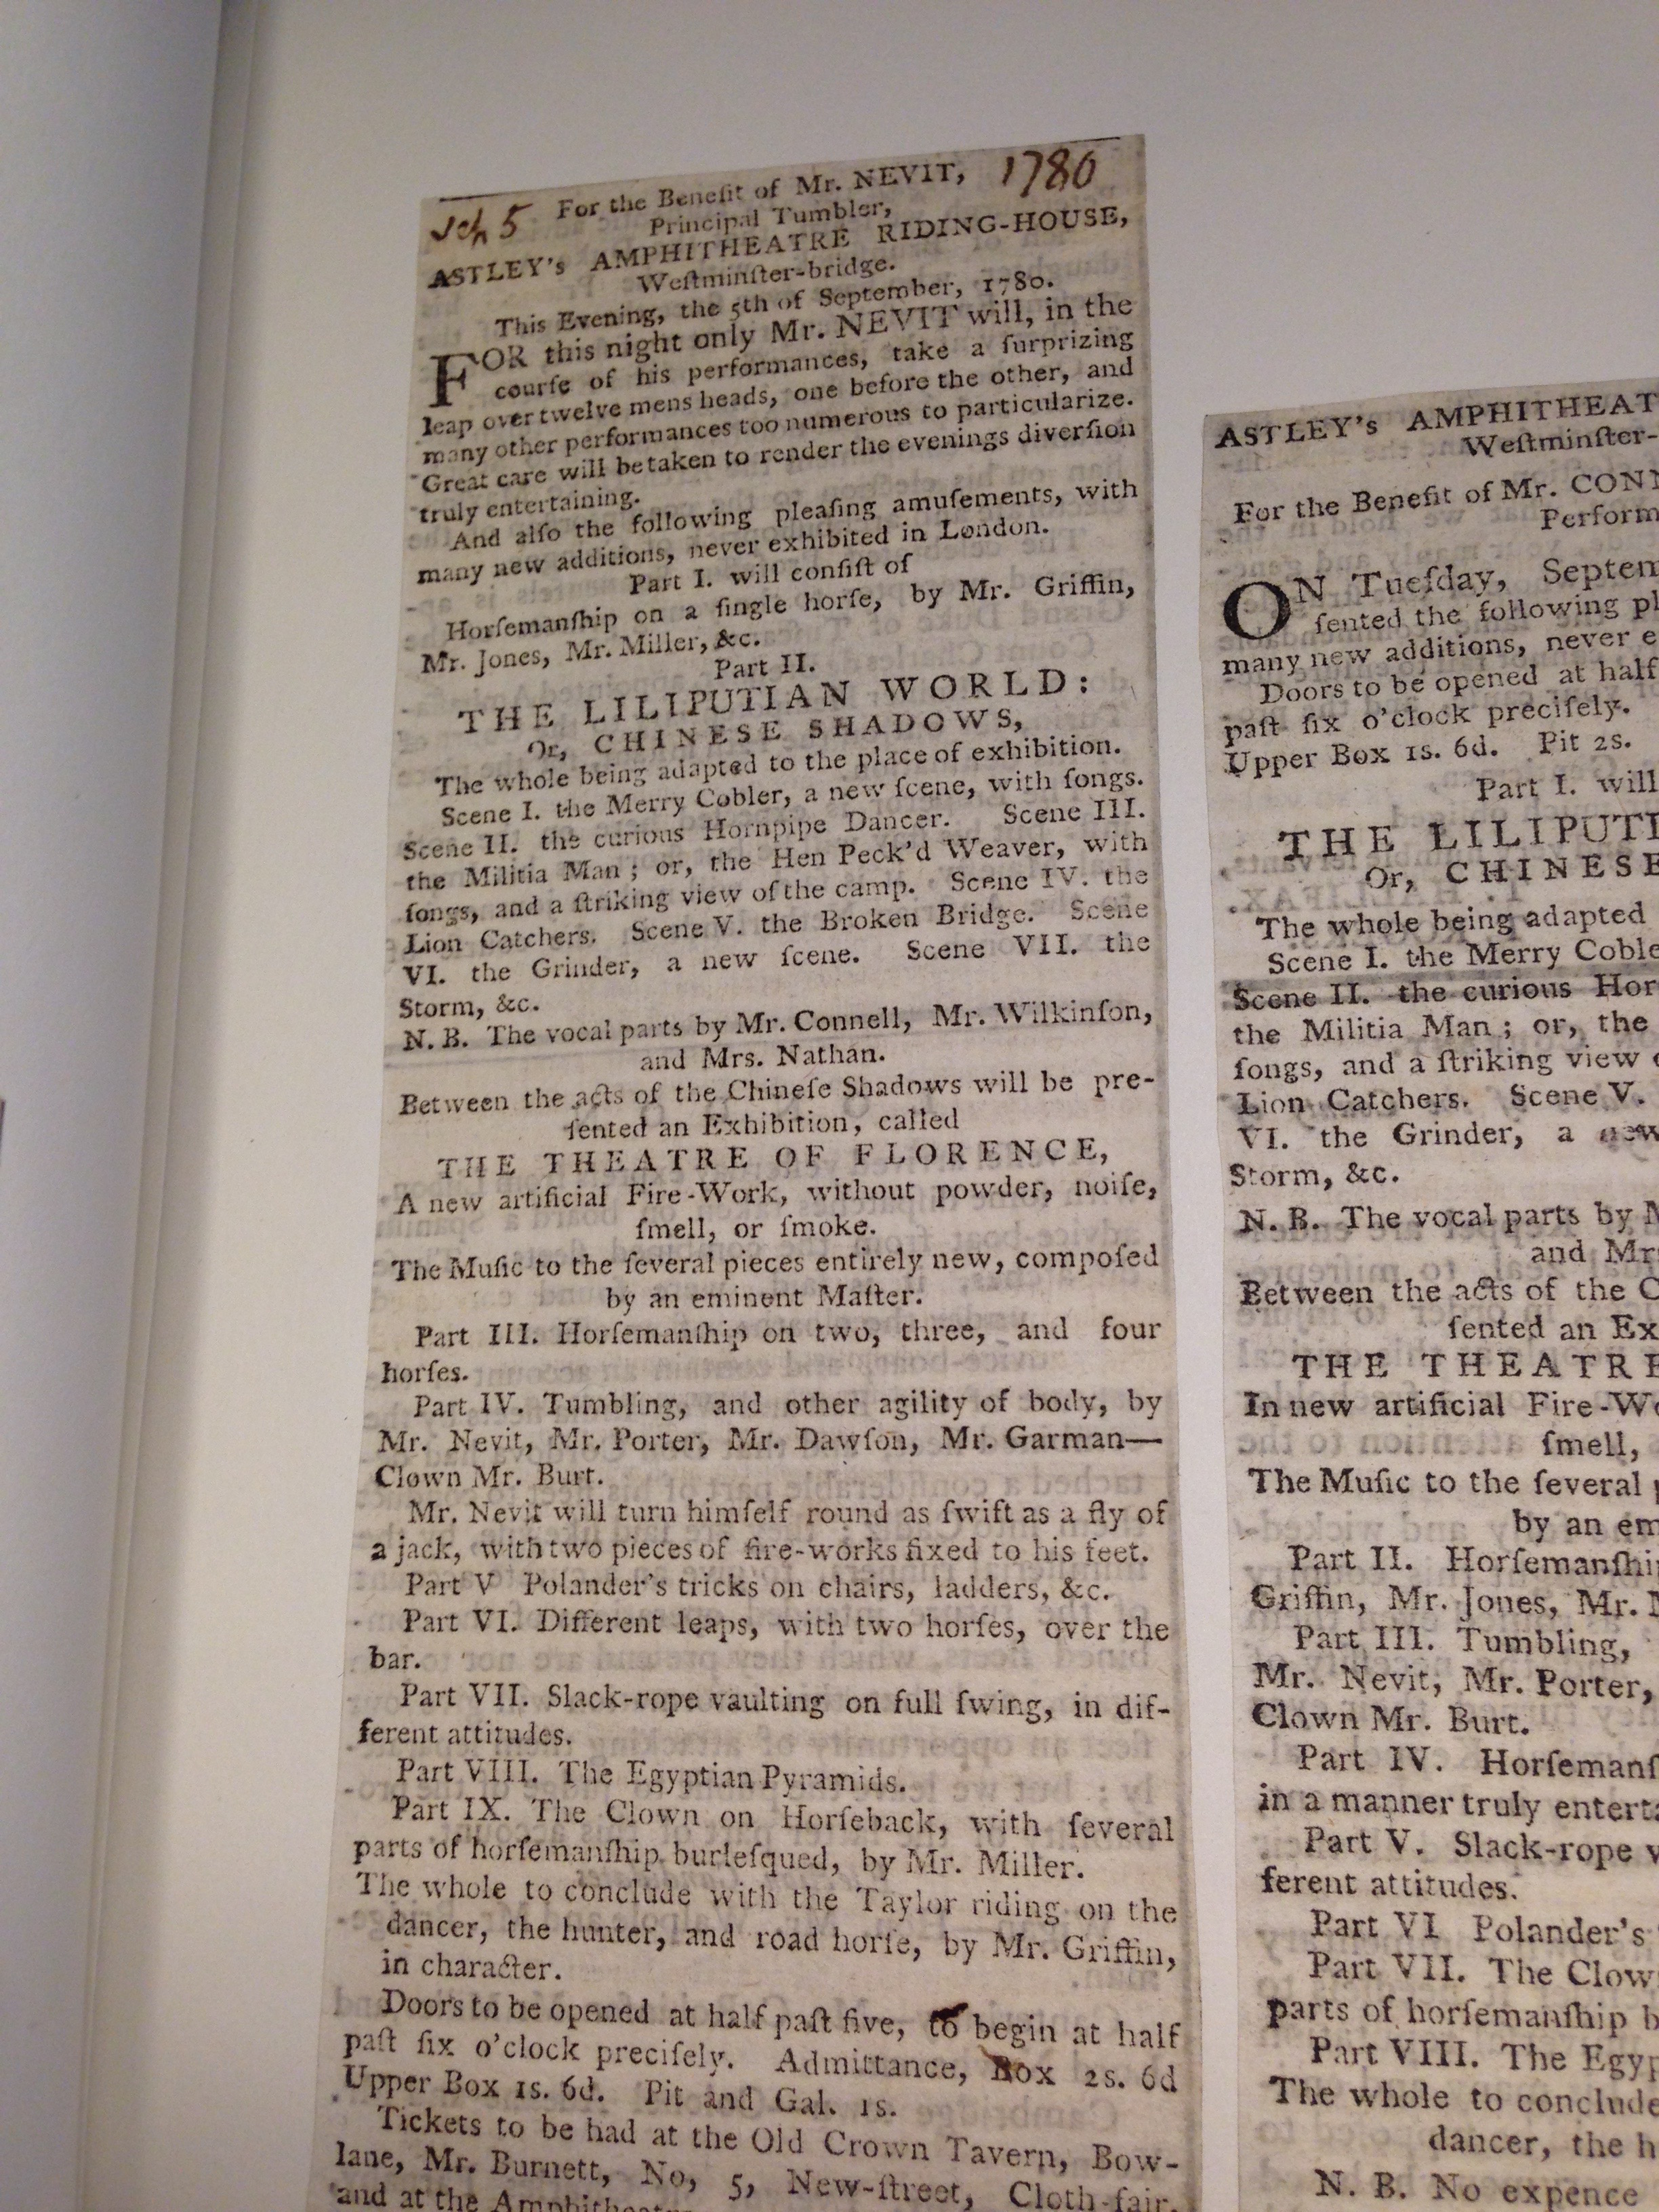 5
1780
For the Benefit of Mr. NEVIT,
Principal Tumbler,
ASTLEY's AMPHITHEATRE RIDING-HOUSE,
Weſtminſter-bridge.
This Evening, the 5th of September, 1780.
FOR this night only Mr. NEVIT will, in the
courſe of his performances, take a ſurprizing
leap over twelve mens heads, one before the other, and
many other performances too numerous to particularize.
Great care will be taken to render the evenings diverſion
truly entertaining.
And alſo the following pleaſing amuſements, with
many new additions, never exhibited in London.
Part I. will conſiſt of
Horſemanſhip on a ſingle horſe, by Mr. Griffin,
Mr. Jones, Mr. Miller, &c.
Part II.
THE LILIPUTIAN WORLD:
Or, CHINESE SHADOWS,
The whole being adapted to the place of exhibition.
Scene I. the Merry Cobler, a new ſcene, with ſongs.
Scene II. the curious Hornpipe Dancer. Scene III.
the Militia Man ; or, the Hen Peck'd Weaver, with
ſongs, and a ſtriking view of the camp. Scene IV. the
Lion Catchers. Scene V. the Broken Bridge. Scene
VI. the Grinder, a new ſcene. Scene VII. the
Storm, &c.
N. B. The vocal parts by Mr. Connell, Mr. Wilkinſon,
and Mrs. Nathan.
Between the acts of the Chineſe Shadows will be pre-
ſented an Exhibition, called
THE THEATRE OF FLORENCE,
A new artificial Fire-Work, without powder, noiſe,
ſmell, or ſmoke.
The Muſic to the ſeveral pieces entirely new, compoſed
by an eminent Maſter.
Part III. Horſemanſhip on two, three, and four
horſes.
Part IV. Tumbling, and other agility of body, by
Mr. Nevit, Mr. Porter, Mr. Dawſon, Mr. Garman—
Clown Mr. Burt.
Mr. Nevit will turn himſelf round as ſwift as a fly of
a jack, with two pieces of fire-works fixed to his feet.
Part V Polander's tricks on chairs, ladders, &c.
Part VI. Different leaps, with two horſes, over the
bar.
Part VII. Slack-rope vaulting on full ſwing, in dif-
ferent attitudes.
Part VIII. The Egyptian Pyramids.
Part IX. The Clown on Horſeback, with ſeveral
parts of horſemanſhip burleſqued, by Mr. Miller.
The whole to conclude with the Taylor riding on the
dancer, the hunter, and road horſe, by Mr. Griffin,
in character.
Doors to be opened at half paſt five, to begin at half
paſt ſix o'clock preciſely. Admittance, Box 2s. 6d
Upper Box 1s. 6d. Pit and Gal. 1s.
Tickets to be had at the Old Crown Tavern, Bow-
lane, Mr. Burnett, No, 5, New-ſtreet, Cloth-fair,
and at the
ASTLEY's AMPHITHEAT
Weſtminſter-
For the Benefit of Mr. CONN
Perform
ON Tueſday, Septem
ſented the following pl
many new additions, never e
Doors to be opened at half
paſt ſix o'clock preciſely.
Upper Box 1s. 6d. Pit 2s.
Part I. will
THE LILIPUTI
Or, CHINESE
The whole being adapted
Scene I. the Merry Coble
Scene II. the curious Hor
the Militia Man ; or, the
ſongs, and a ſtriking view
Lion Catchers. Scene V.
VI. the Grinder, a new
Storm, &c.
N. B. The vocal parts by M
and Mr
Between the acts of the C
ſented an Ex
THE THEATRE
In new artificial Fire-Wo
ſmell,
The Muſic to the ſeveral
by an em
Part II. Horſemanſhi
Griffin, Mr. Jones, Mr. M
Part III. Tumbling,
Mr. Nevit, Mr. Porter,
Clown Mr. Burt.
Part IV. Horſemanſ
in a manner truly enterta
Part V. Slack-rope v
ferent attitudes.
Part VI Polander's
Part VII. The Clow
parts of horſemanſhip b
Part VIII. The Egyp
The whole to conclude
dancer, the h
N. B. No expence